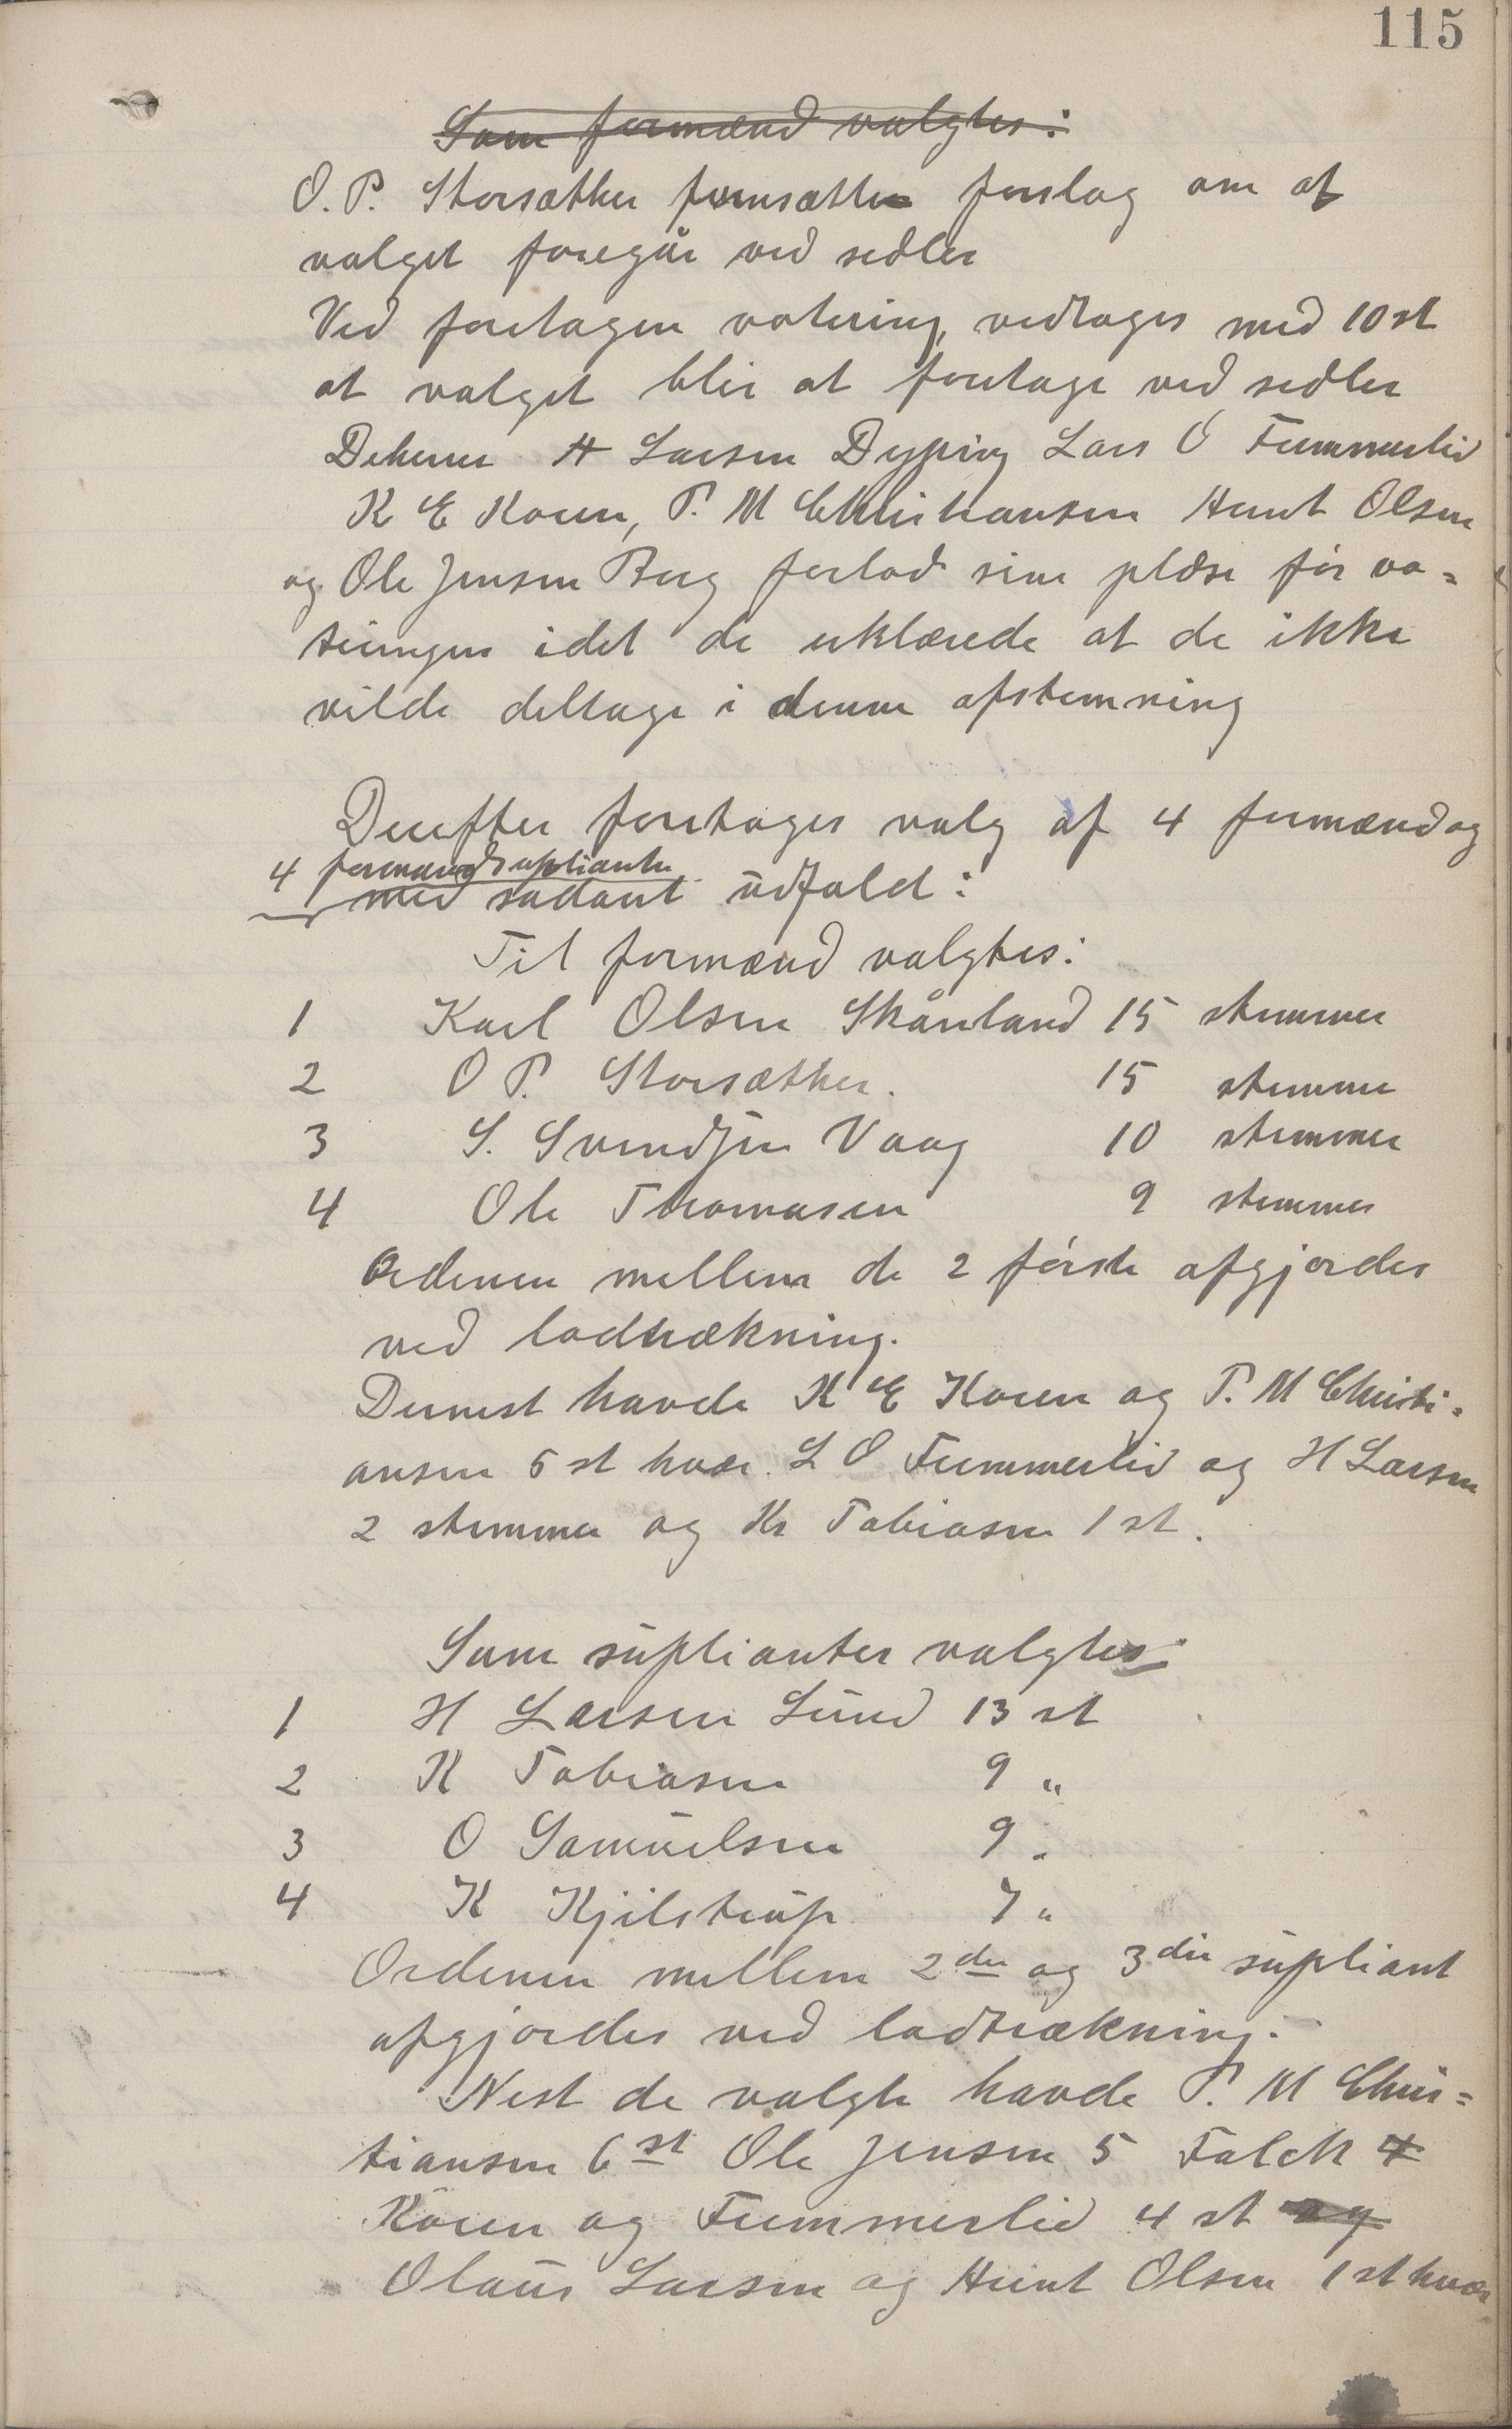 115
Som formænd valgtes:
O. P. Storsæther fremsætter forslag om at
valget foregår ved sedler
Ved foretagen votering, vedtages med 10 st
at valget blir at foretage ved sedler
H Larsen Dyping Lars O Tummerlid
K E Koren, P. M Christiansen Hemt Olsen
og Ole Jensen Berg forlod sine pladse før vo=
teringen idet de erklærede at de ikke
vilde deltage i denne afstemning
Derefter foretages valg af 4 formænd og
4 formandsuplianter
med sådant udfald:
Til formænd valgtes:
1 Karl Olsen Skånland 15 stemmer
2 O P. Storsæther. 15 stemmer
3 S. Svendsen Vaag 10 stemmer
4 Ole Thomasen 9 stemmer
Ordenen mellem de 2 første afgjordes
ved lodtrækning.
Dernest havde K E Koren og P. M Christi=
ansen 5 st hver. L O Tummerlid og H Larsen
2 stemmer og Kr Tobiasen 1 st.
Som suplianter valgtes:
1 H Larsen Lund 13 st
2 K Tobiasen 9 "
3 O Samuelsen 9 "
4 K Kjilstrup 7 "
Ordenen mellem 2den og 3die supliant
afgjordes ved lodtrækning.
Nest de valgte havde P. M Chris=
tiansen 6 st Ole Jensen 5 Falch 4
Koren og Tummerlid 4 st og
Olaus Larsen og Hemt Olsen 1 st hver